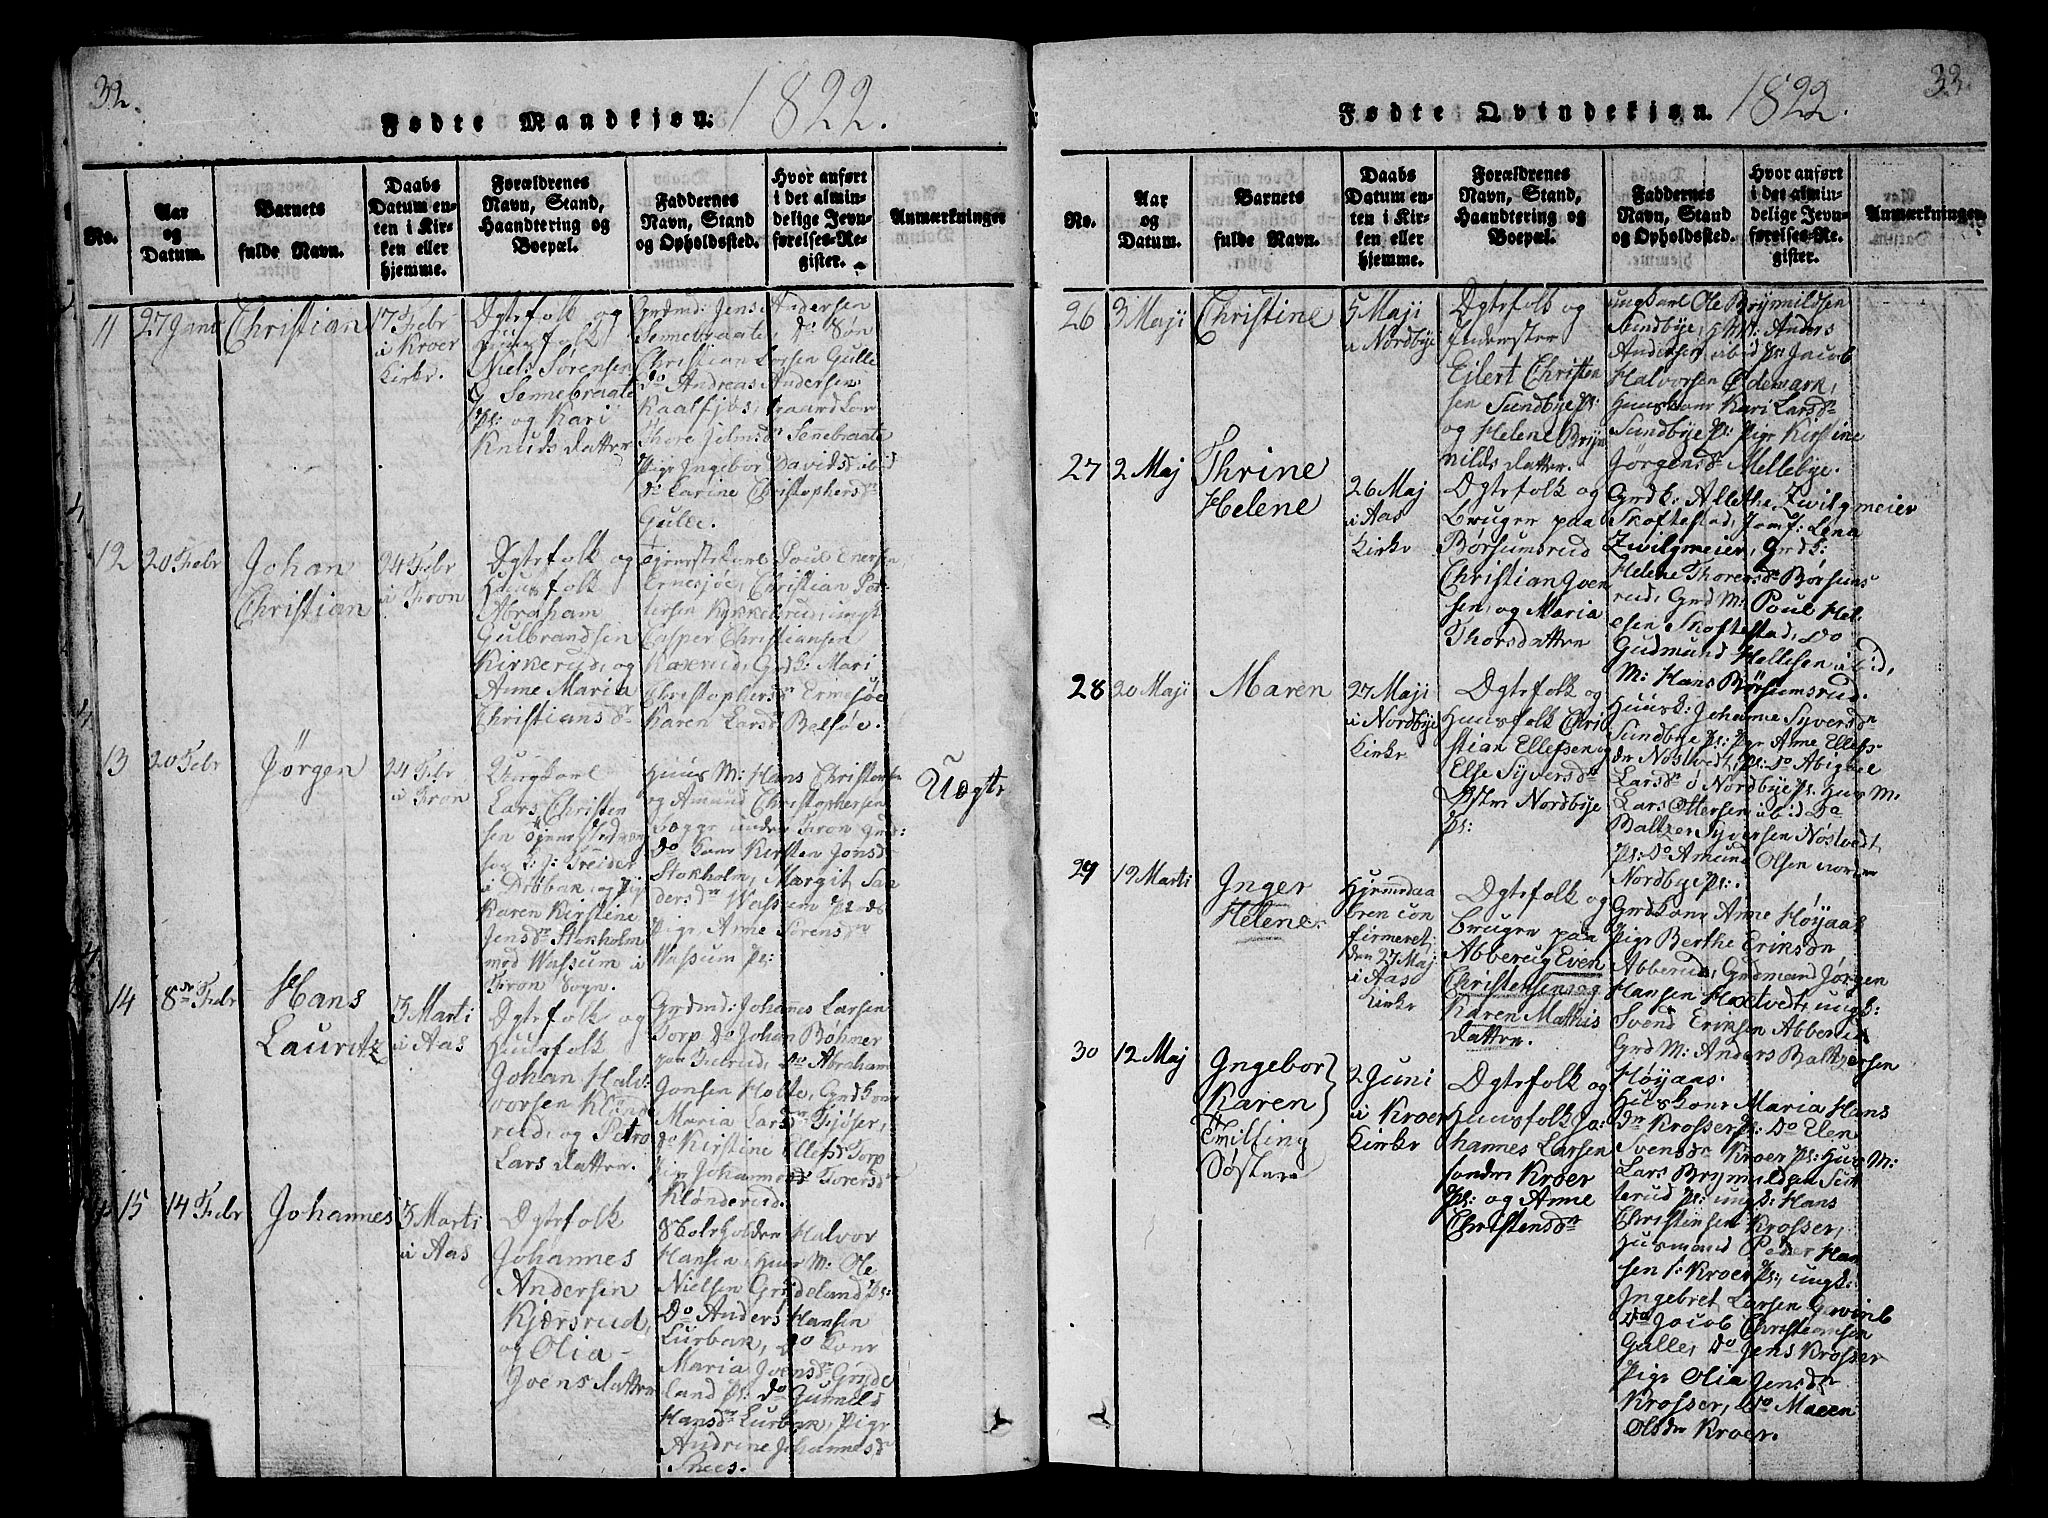 32.
Fødte Mandkjøn: 1822.
No.
Aar og Datum.
Barnets fulde Navn.
Daabs Datum enten i Kirken eller hjemme.
Forældrenes Navn, Stand, Haandtering og Boepæl.
Faddernes Navn, Stand og Opholdssted.
Hvor anført i det almindelige Jevnførelses-Register.
Anmærkninger
11
27 Janv
Christian
17 Febr
i Kroer
Kirke.
Dgtefolk og
Niels Sørensen
Sennebraate
Ps: og Kari
Knudsdatter
Grdmd: Jens Andersen
Sennebraate, do: Søn
Christian Larsen Gulle
Do Andreas Andersen
Kaalfjøs, Gaardkone
Thore Jelmsd Sennebraate
Pige Ingebor Davidsd ibid
do Karine Christophersd
Gulle.
12
20 Febr
Johan
Christian
24 Febr
i Fron
Dgtefolk og
Huusfolk
Abraham
Gulbrandsen
Kirkerud, og
Anne Maria
Christiansd
tjenestekarl Poul Enersen
Ernesjøe, Christian Pet-
tersen Kykkelrud, ungk
Casper Christiansen
Kaxerud, Grdk: Mari
Christophersd Ernesjøe
Karen Larsd Belsøe.
13
20 Febr
Jørgen
24 Febr
i Fron
Ungkarl
Lars Christen
sen
i Drøbak, og Pig
Karen Kirstine
Jensdr Stokholm
med Wassum i
Fron Sogn.
Huus M: Hans Christensen
og Amund Christophersen
Bagge under Fron
Do Kone Kirsten Jonsd
Stokholm, Margit San
dersdr Wassum
Pige Anne Sørensdr
Wassum Ps:
Uægte
14
8de Febr
Hans
Lauritz
3 Marti
i Aas
Dgtefolk og
Huusfolk
Johan Hald:
vorsen Klønd
rud, og Petro
Larsdatter.
Grdmd: Johannes Larsen
Torp Do Johan Bøhmer
paa Februd, Do Abraham
Jonsen Holte, Grdkone
Maria Larsdr Fjøser,
do Kirstine Ellefsd Torp
Pige Johanne Toresdr
Klønderud.
15
14 Febr
Johannes
3 Marti
i Aas
Dgtefolk
Johannes
Andersen
Kjærsrud,
og Olia
Joensdatter
Halvor
Hansen, Huus M: Ole
Nielsen Grydeland Ps:
Do Anders Hansen
Lurbak, do Kone
Maria Joensdr Gryde
land Ps: do Gunnild
Hansdr Lurbak, Pige
Andrine Johannesdr
33.
Fødte Qvindekjøn. 1822.
No.
Aar og Datum.
Barnets fulde Navn.
Daabs Datum enten i Kirken eller hjemme.
Forældrenes Navn, Stand, Haandtering og Boepæl.
Faddernes Navn, Stand og Opholdssted.
Hvor anført i det almindelige Jevnførelses-Register.
Anmærkninger
26
3 Maji
Christine
5 Maji
i Nordbye
Dgtefolk og
Inderster
Eilert Christen
sen Sundbye Ps:
og Helene Bryn
nildsdatter.
ungkarl Ole Brynnildsen
Sundbye, Anders
Andersen ibid Ps: Jacob
Halvorsen Ødemark,
Huuskone Kari Larsdr
Sundbye Ps: Pige Kirstine
Jørgensdr Mellebye.
27
2 Maj
Thrine
Helene
26 Maj
i Aas
Kirke
Dgtefolk og
bruger paa
Børsumsrud
Christian Joen
sen, og Maria
Thorsdatter
Grdk: Allethe Zwilgmeier
Skoftestad, Jomf: Lena
Zwilgmeier, Grdk:
Helene Thoresdr Børsums
rud, Grd M: Poul Hel-
esen Skoftestad, Do
Gudmund Hellesen ibid,
M: Hans Børsumsrud.
28
20 Maji
Maren
27 Maji
i Nordbye
Kirke
Dgtefolk og
Huusfolk Chri
stian Ellefsen og
Else Syversdr
Østre Nordbye
Ps:
Huusk: Johanne Syversdr
Sundbye Ps: Pige Anne Ellefs-
dr Nøstvedt, Ps: do Abigael
Larsdr ø Nordbye Ps. Huus M:
Lars Ottersen ibid Do
Baltzer Syversen Nøstvedt,
Ps: Do Amund Olsen
Nordbye Ps:.
29
19 Marti
Inger
Helene.
Hjemedaa
ben con
firmeret
den 27 Maj
i Aas
Kirke
Dgtefolk og
bruger paa
Abberug Even
Christensen og
Karen Mathis
datter.
Grdkone Anne Høyaas
Pige Berthe Eriksdr
Abberud, Grdmand Jørgen
Hansen Haxtvedt, ungk:
Svend Eriksen Abberud
Grd M: Anders Baltzersen
Høyaas.
30
12 Maj
Ingebor
Karen
Tvilling
Søstere
2 Juni
i Kroer
Kirke
Dgtefolk og
Huusfolk Jo:
hannes Larsen
søndre Kroer
Ps: og Anne
Christensdr
Huuskone Maria Hans
dr Krosser Ps: Do Elen
Svensdr Kroer Ps: Huus M:
Lars Brynnildsen
terud Ps: ungk: Hans
Christensen Krosser,
Husmand Peder Han
sen s: Kroer Ps:, ungk:
Ingebret Larsen
Do Jacob Christiansen
Gulle, Do Jens Krosser
Pige Olia Jensdr
Krosser, do Maren
Olsdr Kroer.